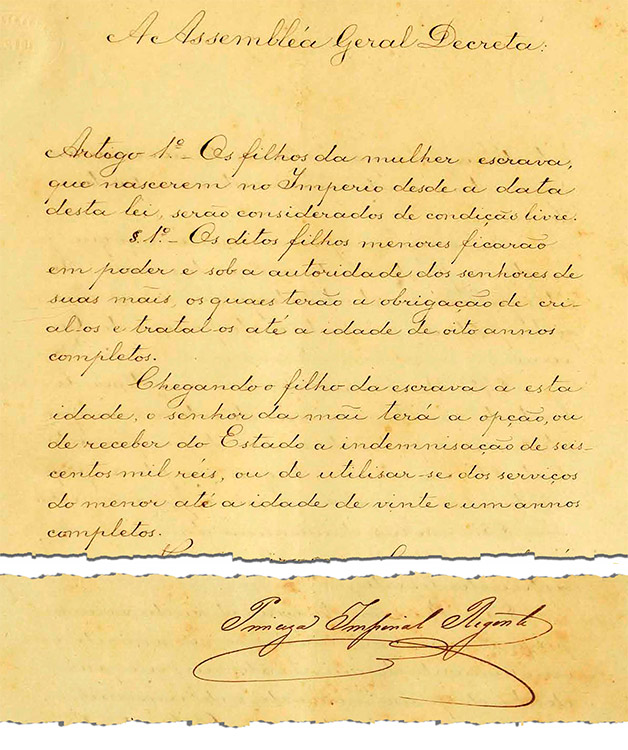 A Assembléa Geral Decreta:
Artigo 1º - Os filhos da mulher escrava,
que nascerem no Imperio desde a data
desta lei, serão considerados de condição livre.
§. 1º - Os ditos filhos menores ficarão
em poder e sob a autoridade dos senhores de
suas mãis, os quaes terão a obrigação de cri-
al-os e tratal-os até a idade de oito annos
completos.
Chegando o filho da escrava a esta
idade, o senhor da mãi terá a opção, ou
de receber do Estado a indemnisação de seis-
centos mil réis, ou de utilisar-se dos serviços
do menor até a idade de vinte e um annos
completos.
Princeza Imperial Regente